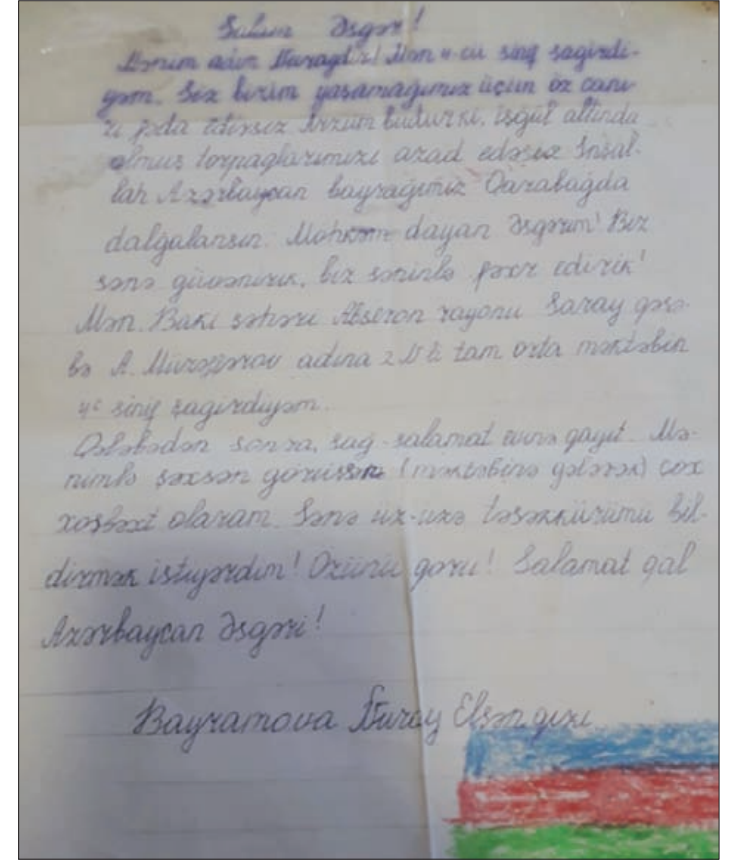 Salam Əsgər!
Mənim adım Nuraydır! Mən 4-cü sinif şagirdi-
yəm. Siz bizim yaşamağımız üçün öz canı-
zı fəda edirsiz Arzum budur ki, işğal altında
olmuş torpaqlarımızı azad edəsiz İnşal-
lah Azərbaycan bayrağımız Qarabağda
dalğalansın. Möhkəm dayan Əsgərim! Biz
sənə güvənirik, biz səninlə fəxr edirik!
Mən Bakı şəhəri Abşeron rayonu Saray qəsə-
bə A. adına 2 №li tam orta məktəbin
4c sinif şagirdiyəm.
Qələbədən sonra, sağ-salamat evinə qayıt. Mə-
nimlə şəxsən görüşsən (məktəbimə gələrək) çox
xoşbəxt olaram. Sənə üz-üzə təşəkkürümü bil-
dirmək istəyərdim! Özünü qoru! Salamat qal
Azərbaycan Əsgəri!
Bayramova Nuray Elşən qızı